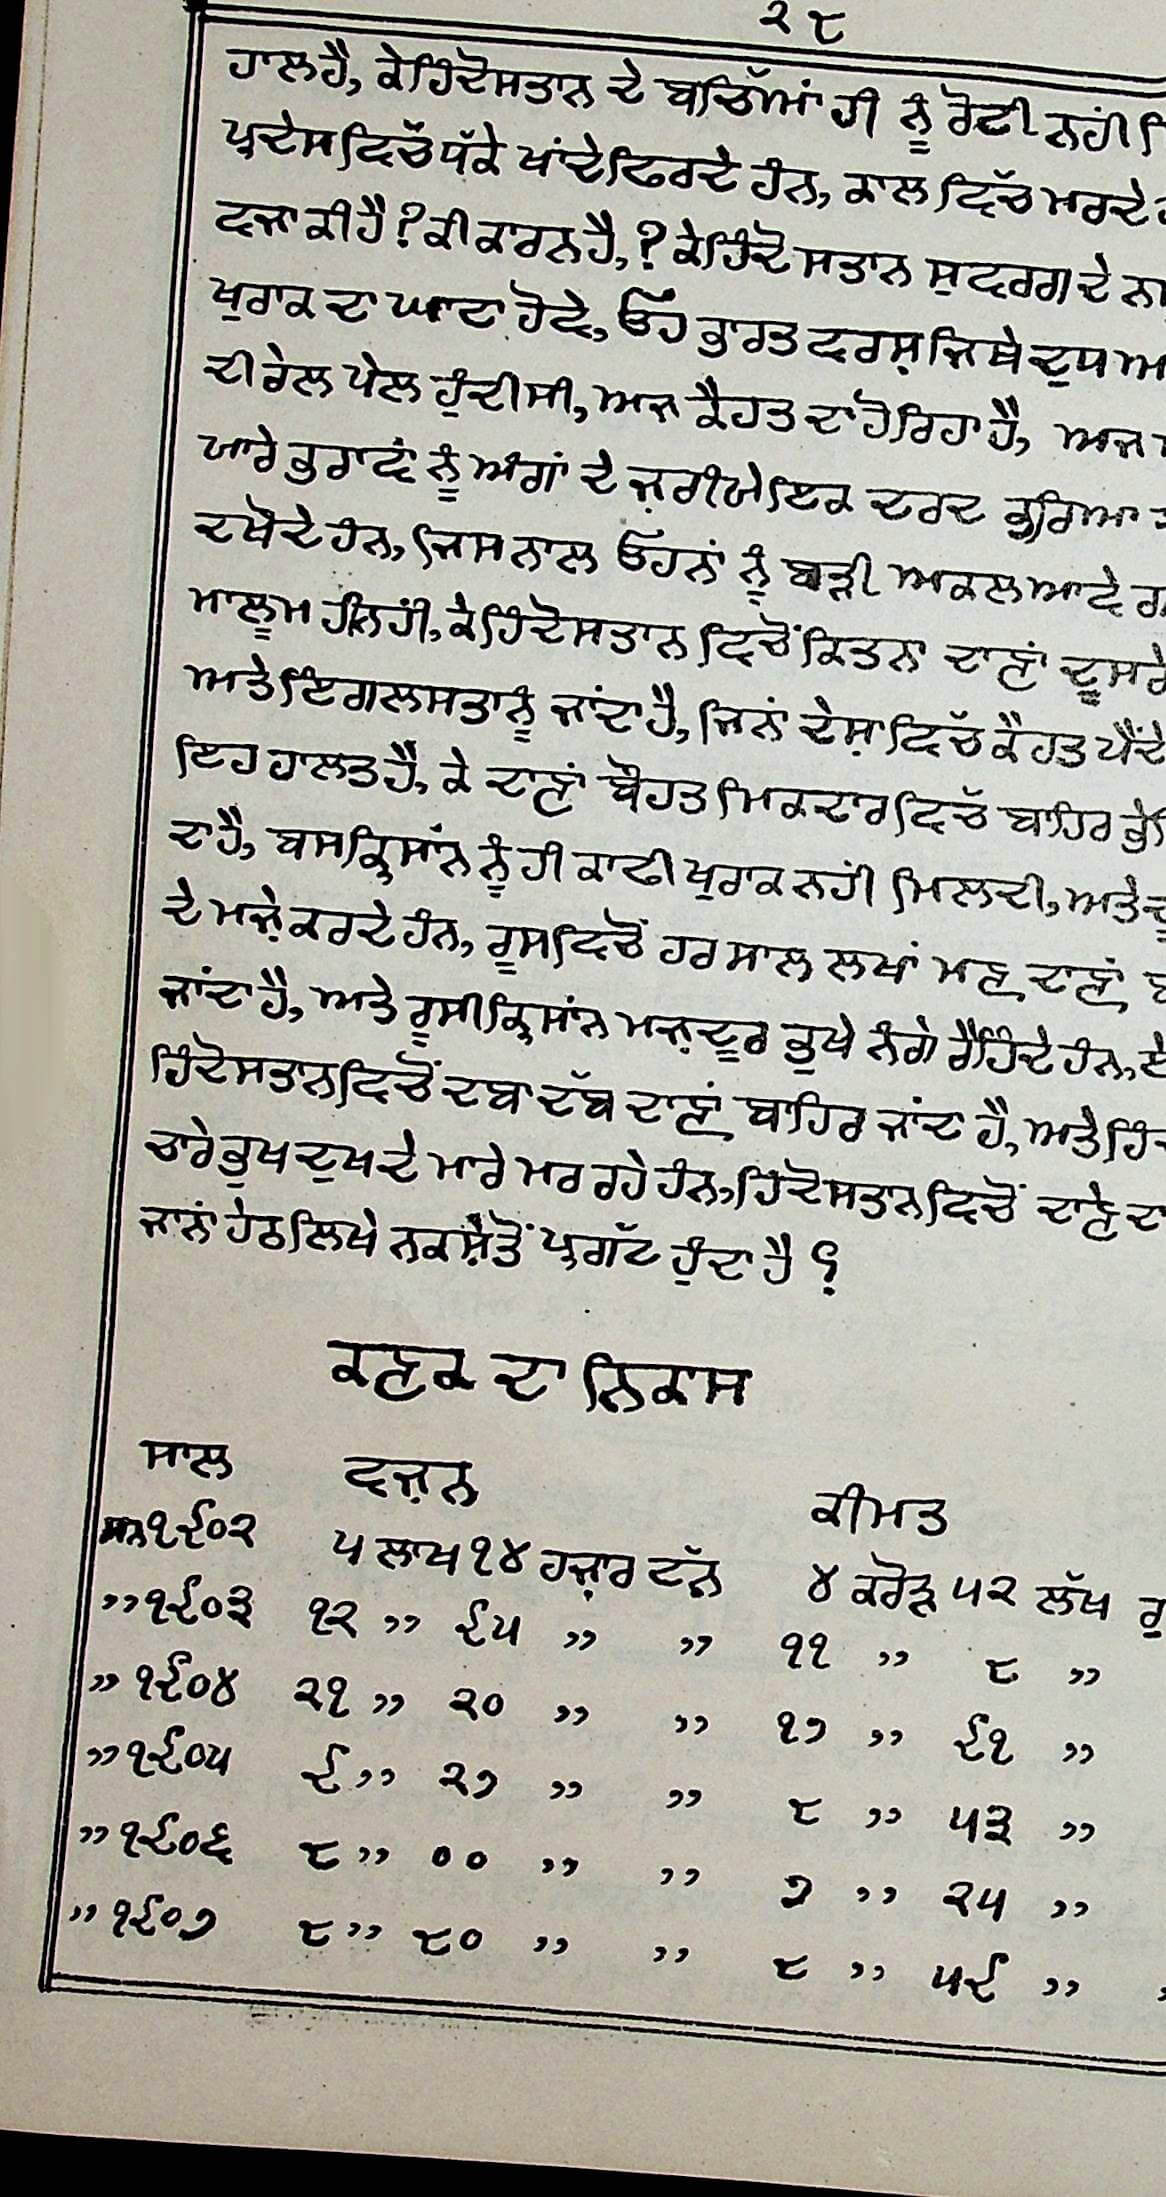 ੨੮
ਹਾਲ ਹੈ, ਕੇ ਹਿੰਦੋਸਤਾਨ ਦੇ ਬਚਿੱਆਂ ਹੀ ਨੂੰ ਰੋਟੀ ਨਹੀਂ
ਪ੍ਰਦੇਸ ਵਿਚੱ ਧੱਕੇ ਖਾਂਦੇ ਫਿਰਦੇ ਹੰਨ, ਕਾਲ ਵਿੱਚ ਮਰਦੇ
ਵਜਾ ਕੀ ਹੈ? ਕੀ ਕਾਰਨ ਹੈ,? ਕੇ ਹਿੰਦੋਸਤਾਨ ਸ੍ਵਰਗ ਦੇ
ਖੁਰਾਕ ਦਾ ਘਾਟਾ ਹੋਵੇ, ਓਹ ਭਾਰਤ ਵਰਸ਼ ਜਿਥੇ ਦੁਧ
ਦੀ ਰੇਲ ਪੇਲ ਹੁੰਦੀ ਸੀ, ਅਜ ਕੈਹਤ ਦਾ ਹੋ ਰਿਹਾ ਹੈ, ਅਜ
ਯਾਰੇ ਭਰਾਵਾਂ ਨੂੰ ਅੰਗਾਂ ਦੇ ਜ਼ਰੀਯੇ ਇਕ ਦਰਦ ਭਰਿਆ
ਦਖੌਦੇ ਹੰਨ, ਜਿਸ ਨਾਲ ਓਹਨਾਂ ਨੂੰ ਬੜੀ ਅਕਲ ਆਵੇ
ਮਾਲੂਮ ਨਹੀਂ, ਕੇ ਹਿੰਦੋਸਤਾਨ ਵਿਚੋਂ ਕਿਤਨਾ ਦਾਣਾਂ ਦੂਸਰੇ
ਅਤੇ ਇੰਗਲਸਤਾਨੂੰ ਜਾਂਦਾ ਹੈ, ਜਿਨਾਂ ਦੇਸ਼ਾਂ ਵਿੱਚ ਕੈਹਤ ਪੈਂਦੇ
ਇਹ ਹਾਲਤ ਹੈ, ਕੇ ਦਾਣਾਂ ਬੌਹਤ ਮਿਕਦਾਰ ਵਿਚੱ ਬਾਹਿਰ
ਦਾ ਹੈ, ਬਸ ਕਿਸਾਂਨ ਨੂੰ ਹੀ ਕਾਫੀ ਖੁਰਾਕ ਨਹੀਂ ਮਿਲਦੀ, ਅਤੇ
ਦੇ ਮਜ਼ੇ ਕਰਦੇ ਹੰਨ, ਰੂਸ ਵਿਚੋਂ ਹਰ ਸਾਲ ਲਖਾਂ ਮਣ ਦਾਣਾਂ
ਜਾਂਦਾ ਹੈ, ਅਤੇ ਰੂਸੀ ਕਿਸਾਂਨ ਮਜ਼ਦੂਰ ਭੁਖੇ ਨੰਗੇ ਰੈਹਿੰਦੇ ਹੰਨ,
ਹਿੰਦੋਸਤਾਨ ਵਿਚੋਂ ਦਬਾ ਦੱਬ ਦਾਣਾਂ ਬਾਹਿਰ ਜਾਂਦਾ ਹੈ, ਅਤੇ
ਚਾਰੇ ਭੁਖ ਦੁਖ ਦੇ ਮਾਰੇ ਮਰ ਰਹੇ ਹੰਨ, ਹਿੰਦੋਸਤਾਨ ਵਿਚੋਂ ਦਾਣੇ ਦਾ
ਜਾਨਾਂ ਹੇਠ ਲਿਖੇ ਨਕਸ਼ੈ ਤੋਂ ਪ੍ਰਗੱਟ ਹੁੰਦਾ ਹੈ
ਕਣਕ ਦਾ ਨਿਕਾਸ
ਸਾਲ ਵਜ਼ਨ ਕੀਮਤ
ਸਨ ੧੯੦੨ ੫ ਲਾਖ ੧੪ ਹਜ਼ਾਰ ਟੱਨ ੪ ਕਰੋੜ ੫੨ ਲੱਖ ਰੁ
,, ੧੯੦੩ ੧੨ ,, ੯੫ ,, ,, ੧੧ ,, ੮ ,,
,, ੧੯੦੪ ੨੧ ,, ੨੦ ,, ,, ੧੭ ,, ੯੧ ,,
,, ੧੯੦੫ ੯ ,, ੨੭ ,, ,, ੮ ,, ੫੩ ,,
,, ੧੯੦੬ ੮ ,, ੦੦ ,, ,, ੭ ,, ੨੫ ,,
,, ੧੯੦੭ ੮ ,, ੮੦ ,, ,, ੮ ,, ੫੯ ,,